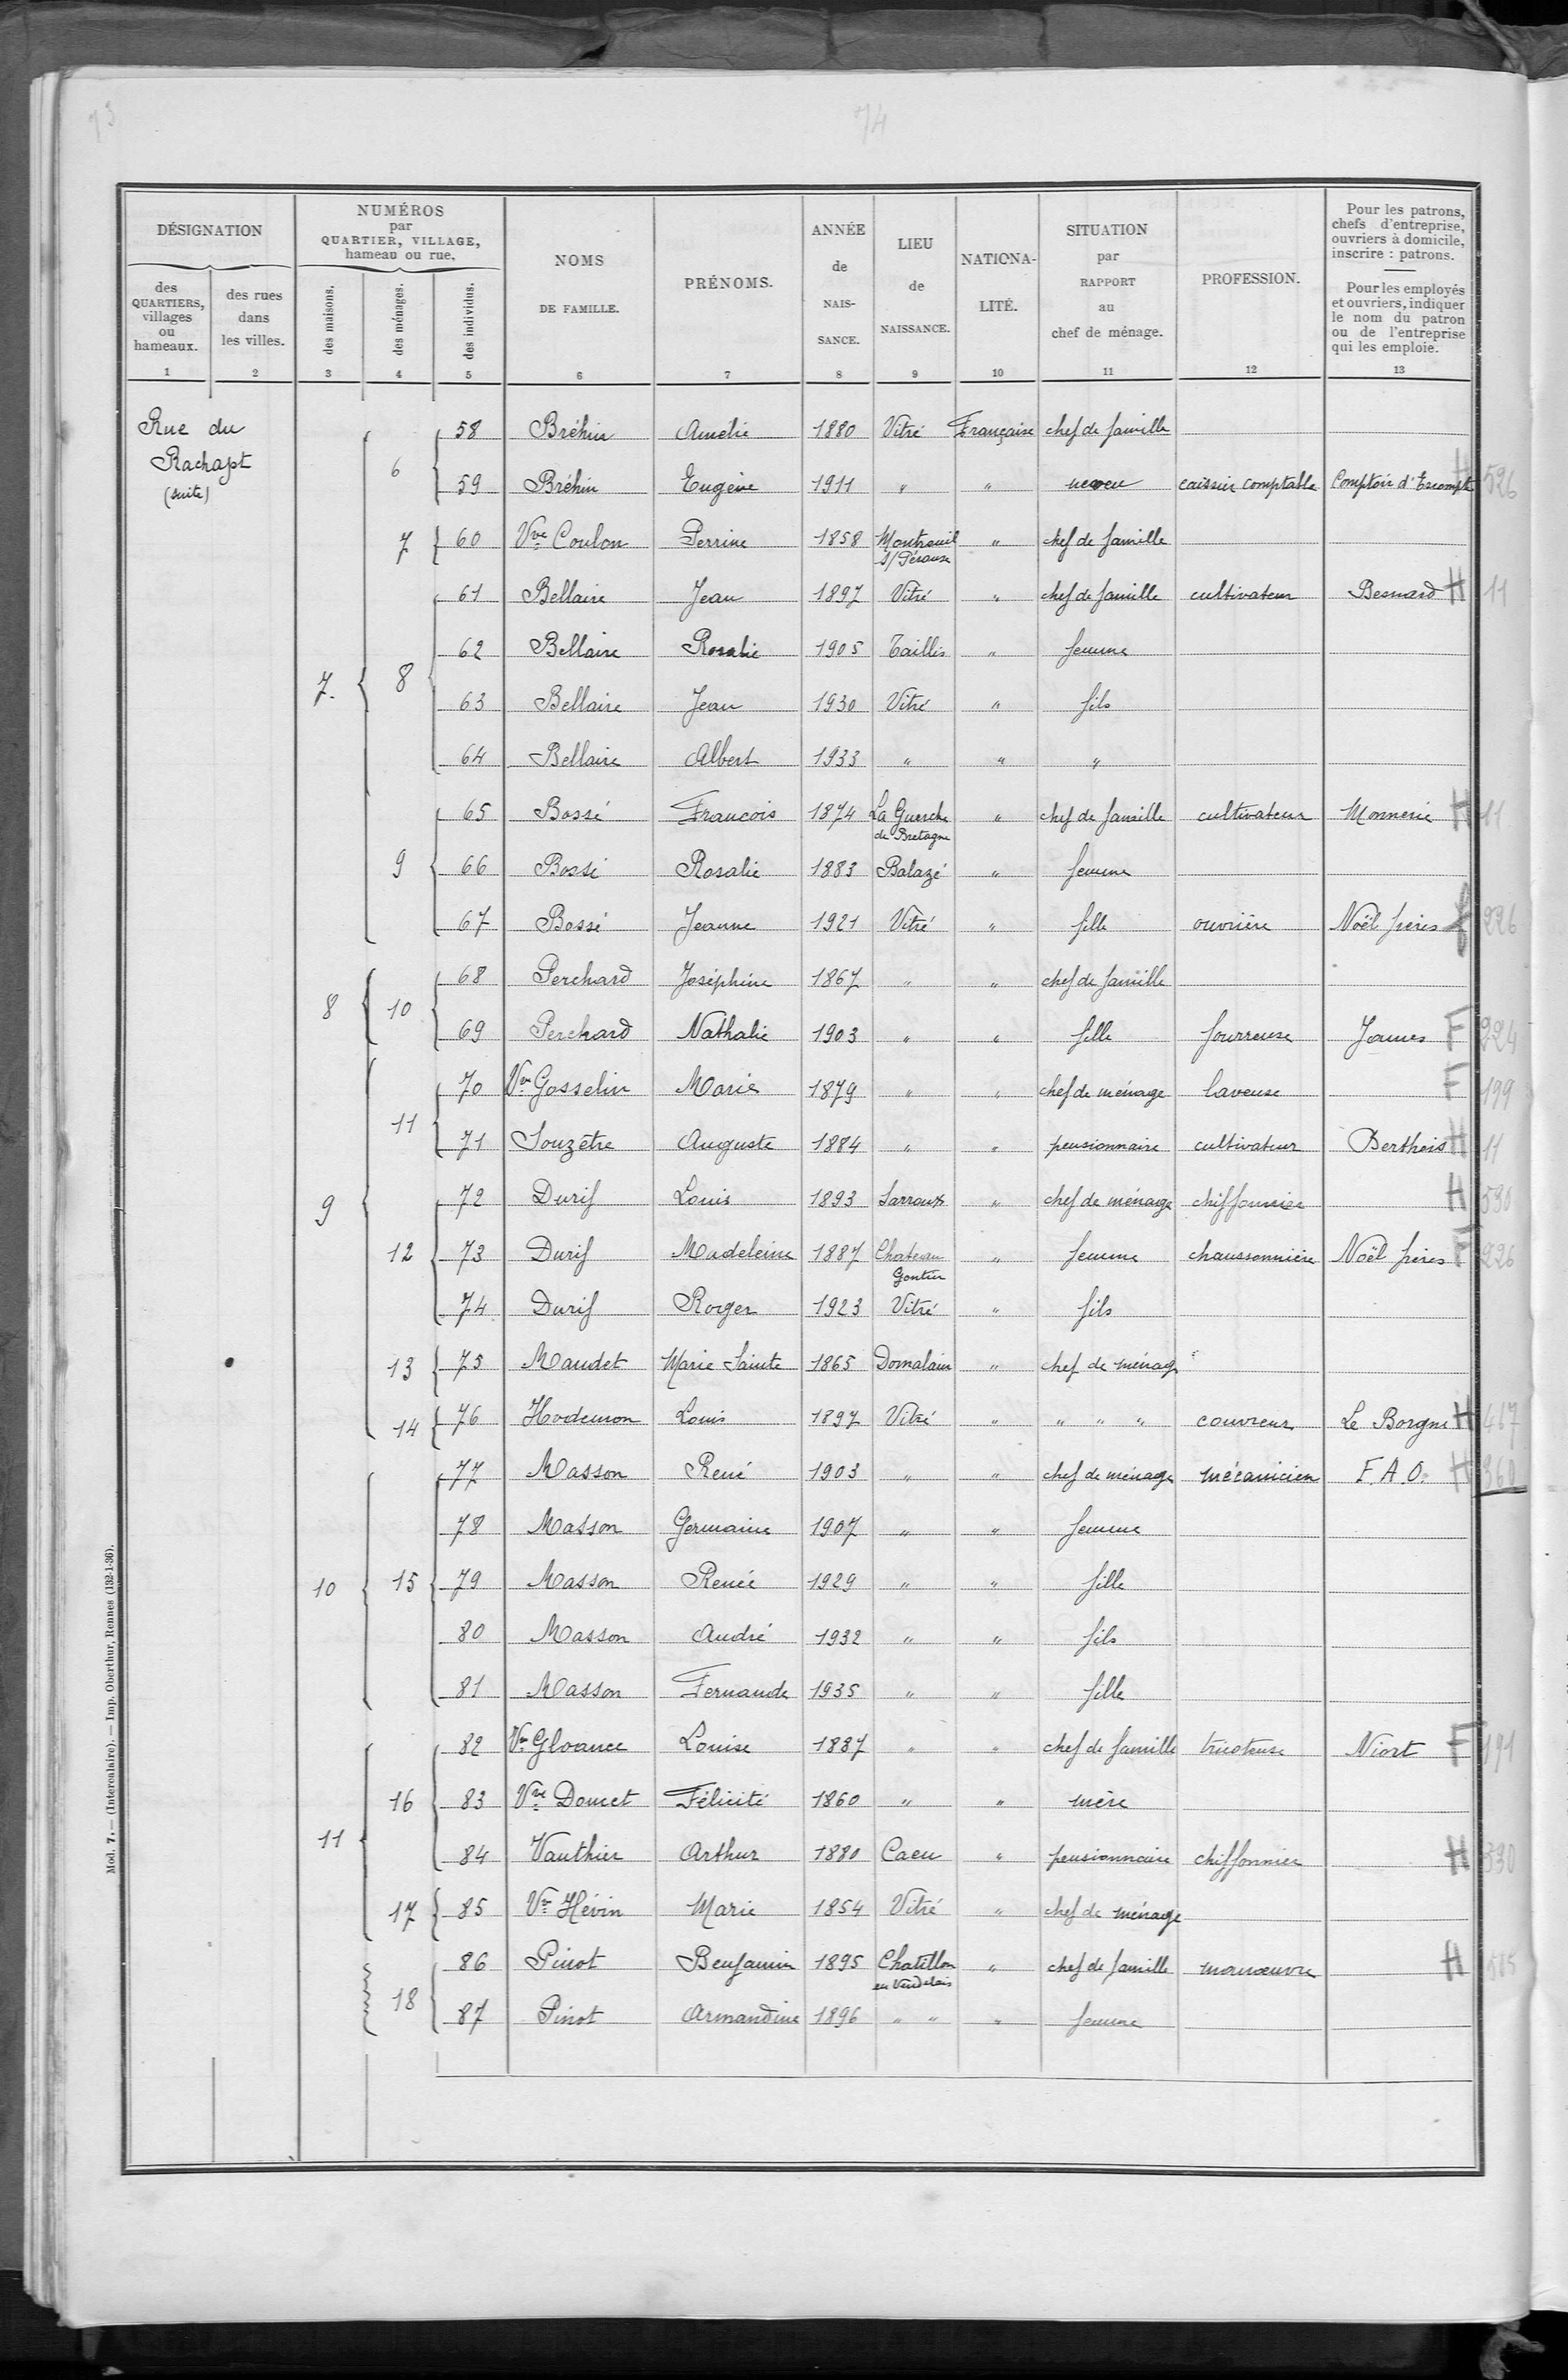 73
74
DÉSIGNATION
des QUARTIERS, villages ou hameaux.
des rues dans les villes.
NUMÉROS par QUARTIER, VILLAGE, hameau ou rue.
des maisons.
des ménages.
des individus.
NOMS DE FAMILLE.
PRÉNOMS.
ANNÉE de NAISSANCE.
LIEU de NAISSANCE.
NATIONALITÉ.
SITUATION par RAPPORT au chef de ménage.
PROFESSION.
Pour les patrons, chefs d'entreprise, ouvriers à domicile, inscrire : patrons.
Pour les employés et ouvriers, indiquer le nom du patron ou de l'entreprise qui les emploie.
1 2 3 4 5 6 7 8 9 10 11 12 13
Rue du Rachapt (suite)
6 58 Bréhin Amélie 1880 Vitré Française chef de famille
59 Bréhin Eugène 1911 " " neveu caissier comptable Comptoir d'Escompte H 526
7 60 Vve Coulon Perrine 1858 Montreuil s/Pérouse " chef de famille
7. 8 61 Bellaire Jean 1897 Vitré " chef de famille cultivateur Besnard H 11
62 Bellaire Rosalie 1905 Taillis " femme
63 Bellaire Jean 1930 Vitré " fils
64 Bellaire Albert 1933 " " "
9 65 Bossé Francois 1874 La Guerche de Bretagne " chef de famille cultivateur Monnerie H 11
66 Bossé Rosalie 1883 Balazé " femme
67 Bossé Jeanne 1921 Vitré " fille ouvrière Noël frères 226
8 10 68 Perchard Joséphine 1867 " " chef de famille
69 Perchard Nathalie 1903 " " fille fourreuse James F 224
9 11 70 Vve Gosselin Marie 1879 " " chef de ménage laveuse F 199
71 Souzêtre Auguste 1884 " " pensionnaire cultivateur Bertheis H 11
12 72 Durif Louis 1893 Sarroux " chef de ménage chiffonnier H 530
73 Durif Madeleine 1887 Chateau Gontier " femme chaussonnière Noël frères F 226
74 Durif Roger 1923 Vitré " fils
13 75 Maudet Marie Sainte 1865 Domalain " chef de ménage
14 76 Hodemon Louis 1897 Vitré " " " " couvreur Le Borgne H 467
10 15 77 Masson René 1903 " " chef de ménage mécanicien F.A.O. H 360
78 Masson Germaine 1907 " " femme
79 Masson Renée 1929 " " fille
80 Masson André 1932 " " fils
81 Masson Fernande 1935 " " fille
11 16 82 Vve Gloanec Louise 1887 " " chef de famille tricoteuse Niort F 191
83 Vve Doucet Félicité 1860 " " mère
84 Vauthier Arthur 1880 Caen " pensionnaire chiffonnier H 530
17 85 Vve Hévin Marie 1854 Vitré " chef de ménage
18 86 Pinot Benjamin 1895 Chatillon en Vendelais " chef de famille manœuvre H
87 Pinot Armandine 1896 " " " femme
Mod. 7. — (Intercalaire). — Imp. Oberthur, Rennes (132-1-36).